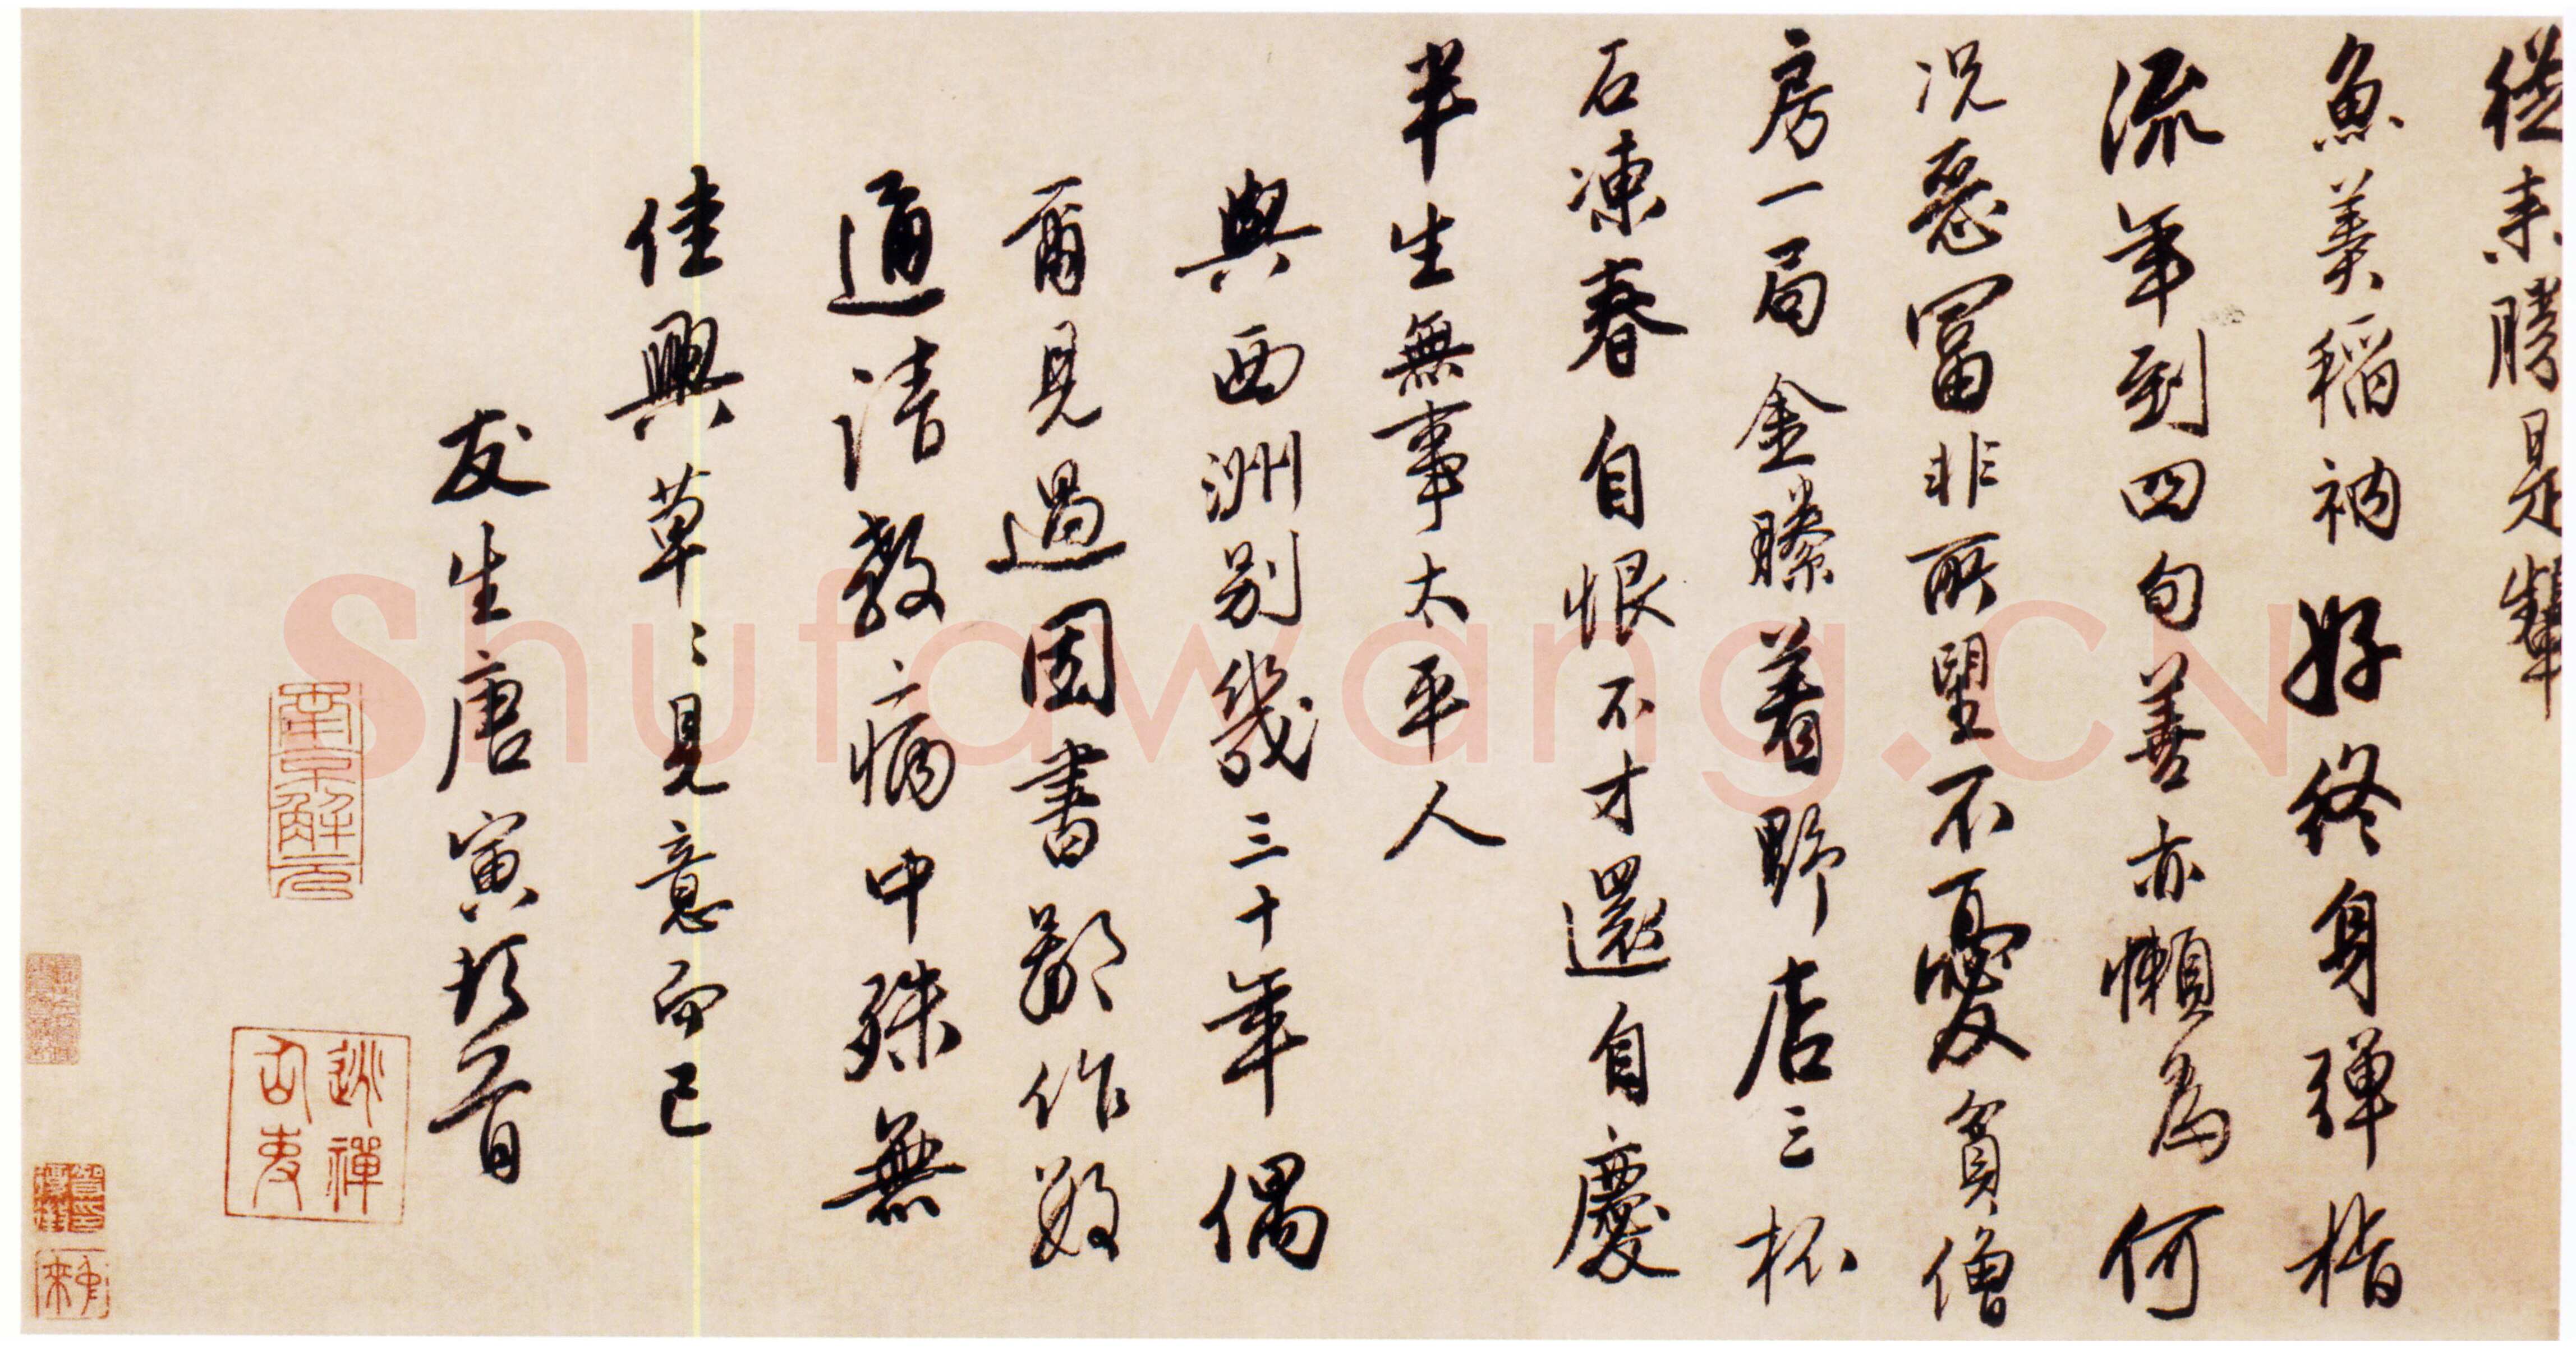 從来勝是
魚羹稻衲好終身彈指
流年到四旬善亦懶為何
況惡富非所望不憂貧僧
房一局金滕著野店三杯
石凍春自恨不才還自慶
半生無事太平人
與西洲別幾三十年偶
爾見過因書鄙作數
通請教病中殊無
佳興草〻見意而已
友生唐寅頓首
南京解元
逃禪仙吏
Shufawang.CN